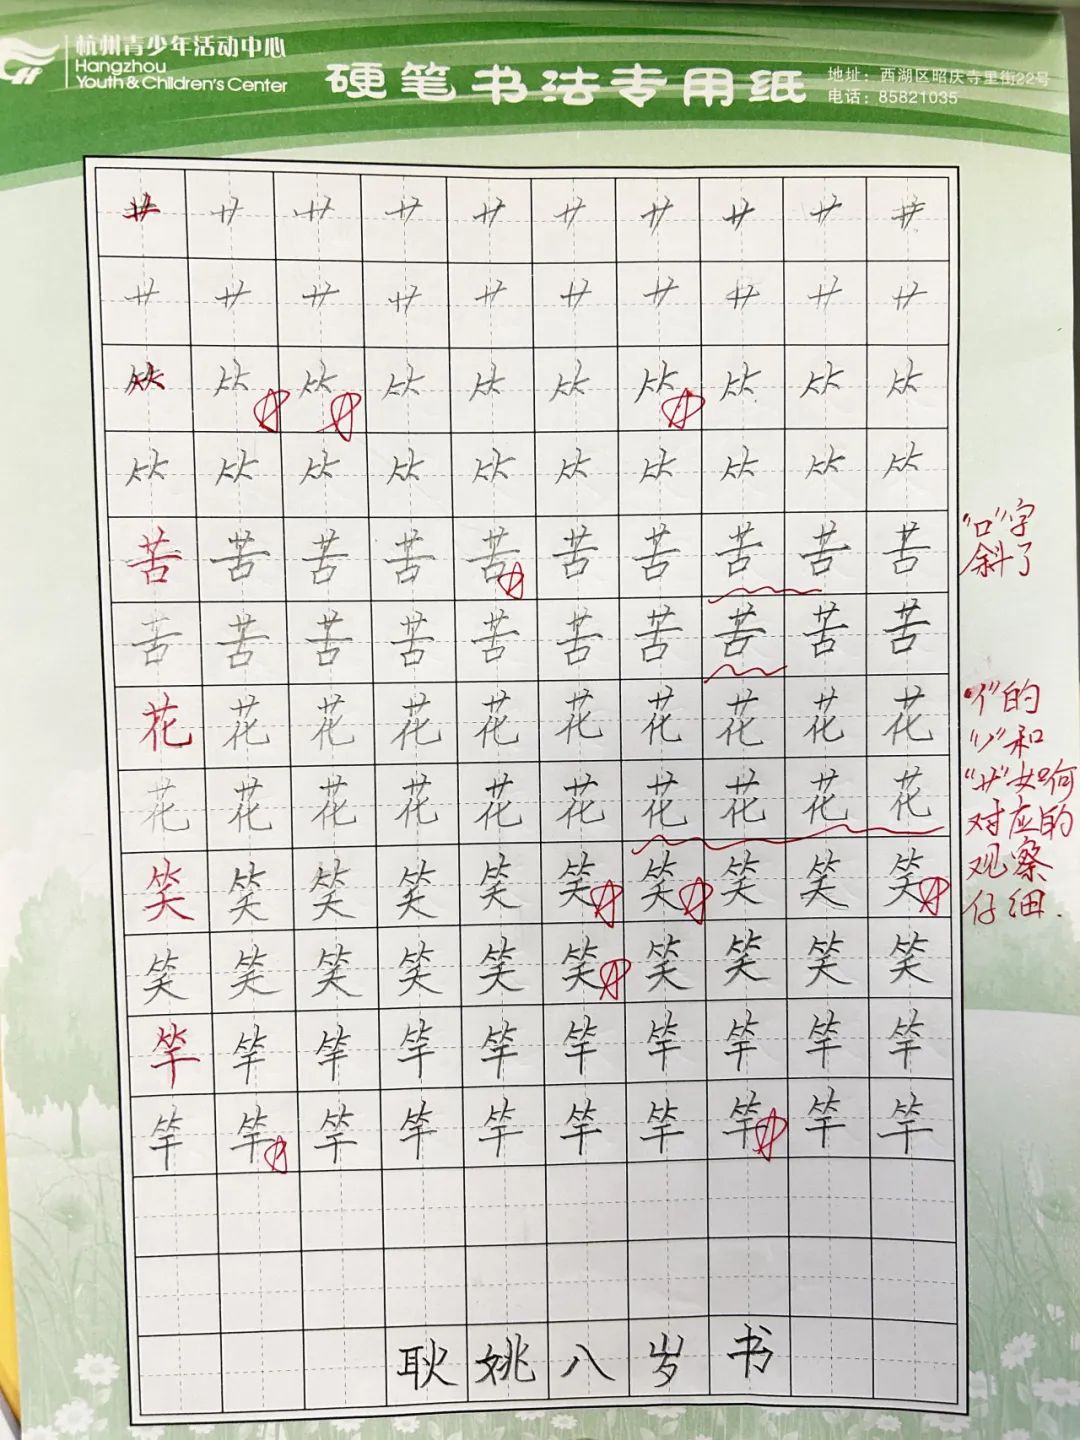 杭州青少年活动中心
Hangzhou
Youth & Children's Center
硬笔书法专用纸
地址：西湖区昭庆寺里街22号
电话：85821035
艹艹艹艹艹艹艹艹艹艹
艹艹艹艹艹艹艹艹艹艹
⺮⺮⺮⺮⺮⺮⺮⺮⺮⺮
⺮⺮⺮⺮⺮⺮⺮⺮⺮⺮
苦苦苦苦苦苦苦苦苦苦
苦苦苦苦苦苦苦苦苦苦
花花花花花花花花花花
花花花花花花花花花花
笑笑笑笑笑笑笑笑笑笑
笑笑笑笑笑笑笑笑笑笑
竿竿竿竿竿竿竿竿竿竿
竿竿竿竿竿竿竿竿竿竿
耿姚八岁书
"口"字
斜了
"亻"的
"丿"和
"艹"如何
对应的
观察
仔细.